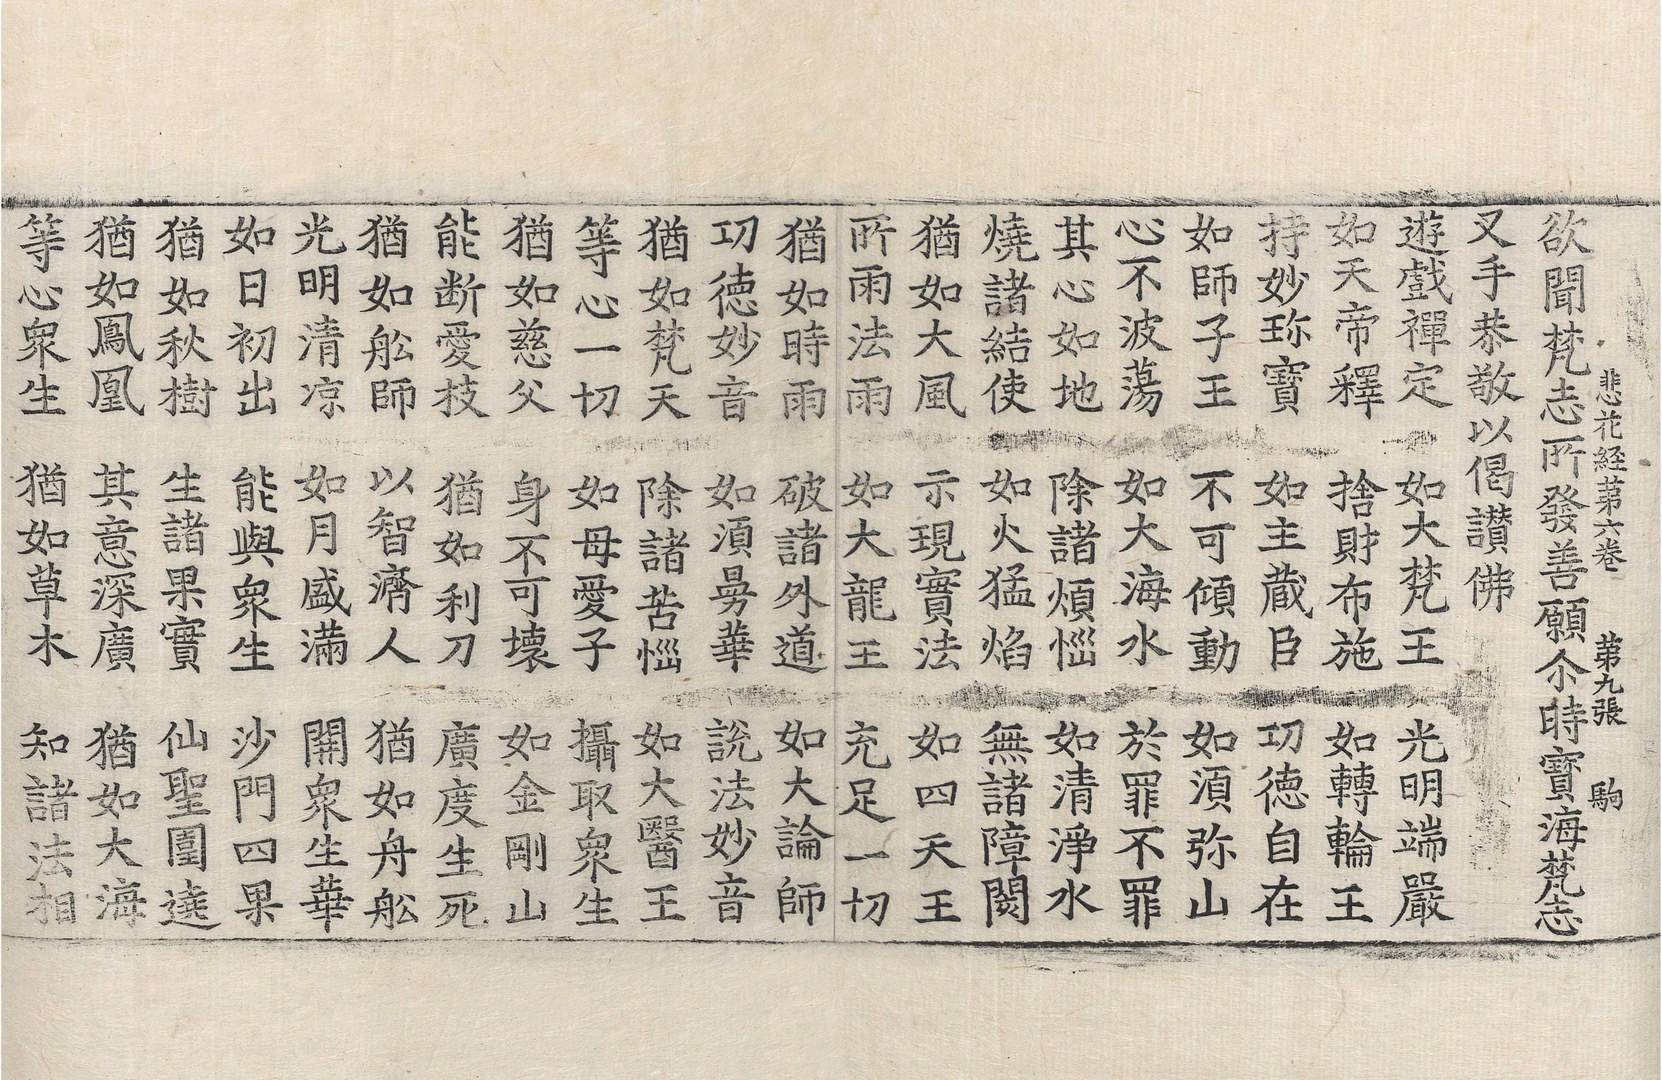 悲花経第六巻 第九張 駒
欲聞梵志所發善願尒時寶海梵志
叉手恭敬以偈讃佛
遊戲禪定 如大梵王 光明端嚴
如天帝釋 捨財布施 如轉輪王
持妙珎寶 如主藏臣 功德自在
如師子王 不可傾動 如須弥山
心不波蕩 如大海水 於罪不罪
其心如地 除諸煩惱 如清淨水
燒諸結使 如火猛焰 無諸障閡
猶如大風 示現實法 如四天王
所雨法雨 如大龍王 充足一切
猶如時雨 破諸外道 如大論師
功徳妙音 如須曼華 說法妙音
猶如梵天 除諸苦惱 如大醫王
等心一切 如母愛子 攝取衆生
猶如慈父 身不可壊 如金剛山
能断愛枝 猶如利刀 廣度生死
猶如舩師 以智濟人 猶如舟舩
光明清凉 如月盛滿 開衆生華
如日初出 能與衆生 沙門四果
猶如秋樹 生諸果實 仙聖圍遶
猶如鳳凰 其意深廣 猶如大海
等心衆生 猶如草木 知諸法相